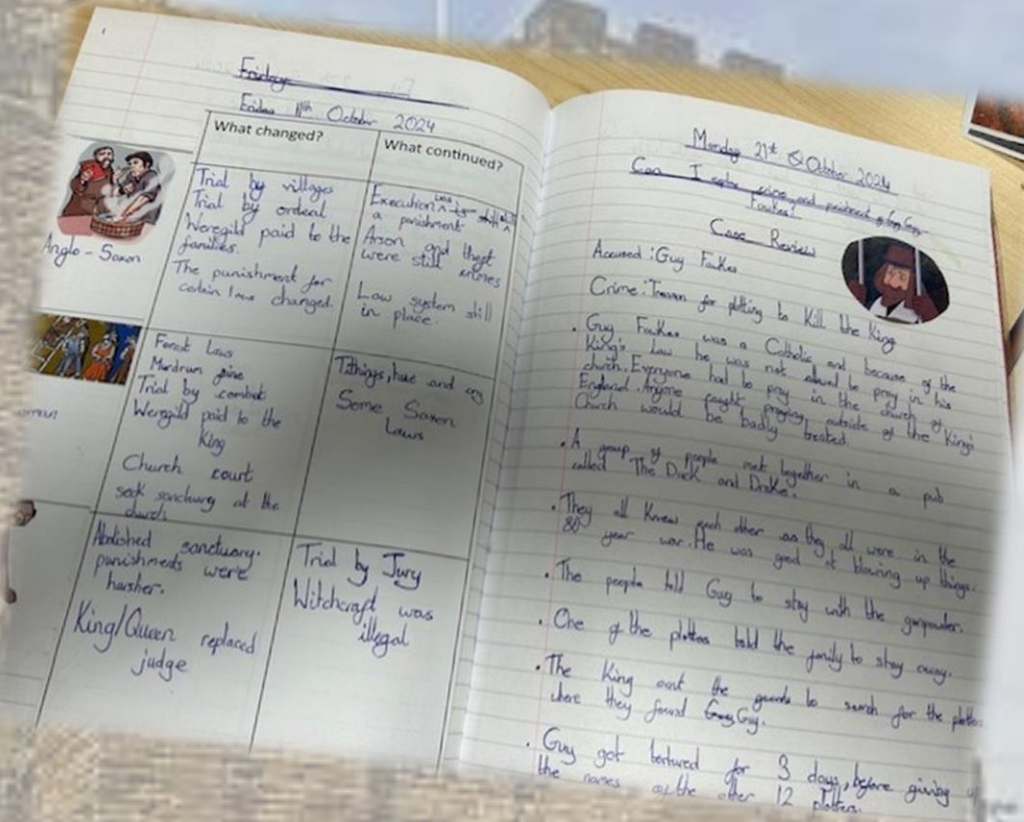 Friday
Friday 11th October 2024
What changed?
What continued?
Anglo-Saxon
Trial by villages
Trial by ordeal
Weregild paid to the
families.
The punishment for
certain laws changed.
Execution was
a punishment
Arson and theft
were still crimes
Law system still
in place.
Forest Laws
Murdrum fine
Trial by combat
Weregild paid to the
King
Church court
seek sanctuary at the
church
Tithings, hue and cry
Some Saxon
Laws
Abolished sanctuary.
punishments were
harsher.
King/Queen replaced
judge
Trial by Jury
Witchcraft was
illegal
Monday 21st October 2024
Can I explore crime and punishment of Guy
Fawkes?
Case Review
Accused: Guy Fawkes
Crime: Treason for plotting to Kill the King
• Guy Fawkes was a Catholic and because of the
King's law he was not allowed to pray in his
church. Everyone had to pray in the church of
England. Anyone caught praying outside of the King's
Church would be badly treated.
• A group of people met together in a pub
called "The Duck and Drake".
• They all knew each other as they all were in the
80 year war. He was good at blowing up things.
• The people told Guy to stay with the gunpowder.
• One of the plotters told the family to stay away.
• The King sent the guards to search for the plotters
where they found Guy.
• Guy got tortured for 3 days, before giving
the names of the other 12 plotters.